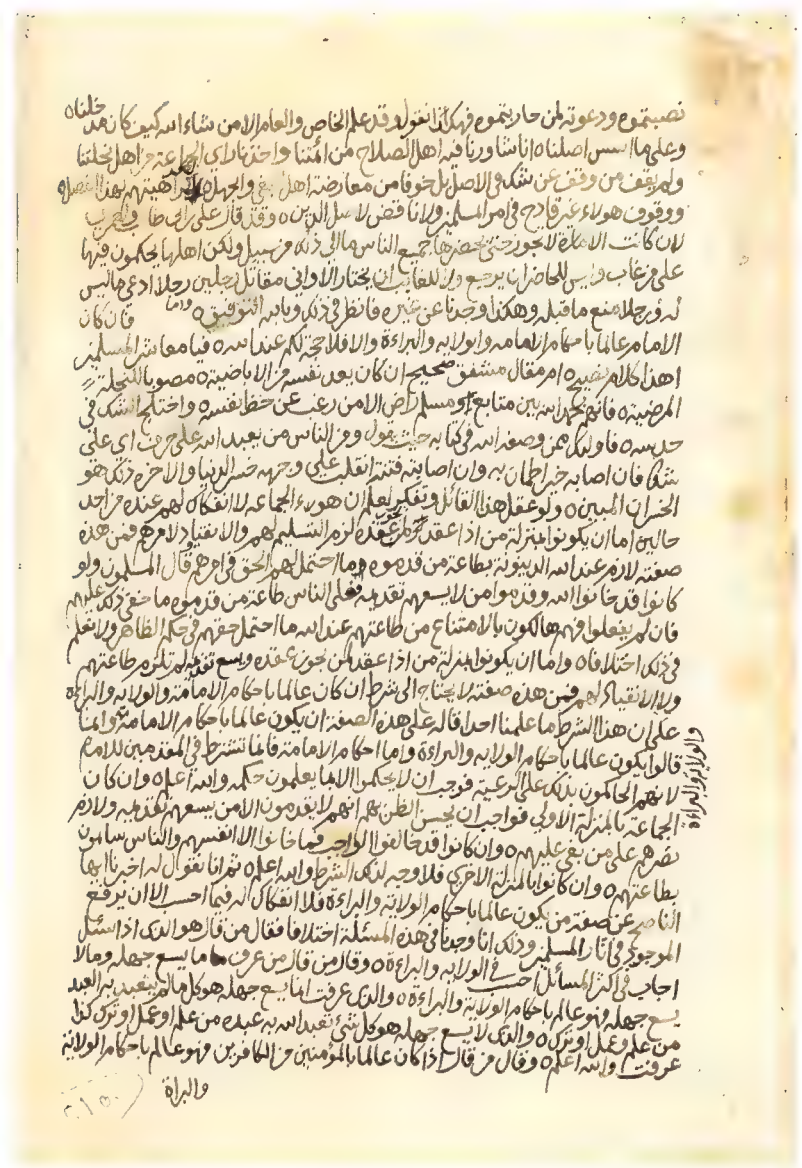 نصبتموه ودعوته لمن حاربتموه فهكذا نقول وقد علم الخاص والعام الا من شاء الله كيف كان مدخلنا ه
وعلى ما اسس اصلنا ه انا شاورنا فيه اهل الصلاح من ائمتنا واخذنا راي الجماعة من اهل نحلتنا
ولم يقف من وقف عن شك في الاصل بل خوفا من معارضة اهل بغي والجهل ه لكراهيتهم بهذا الفصل ه
ووقوف هولاء غير قادح في امر المسلمين ولا ناقض لاصل الدين ه وقد قال علي بن ابي طالب
لان كانت الامامة لا تجوز حتى يحضرها جميع الناس ما الى ذلك من سبيل ولكن اهلها يحكمون فيها
على من غاب وليس للحاضر ان يرجع ولا للغائب ان يختار الا واني مقاتل رجلين رجلا ادعى ما ليس
له ورجلا منع ما قبله وهكذا وجدنا عن غيره فانظر في ذلك وبالله التوفيق ه واما فان كان
الامام عالما باحكام الامامه والولايه والبراءة والا فلا حجة لكم عند الله ه فيا معاشر المسلمين
اهذا كلام نصيح ه ام مقال مشفق صحيح ان كان يعد نفسه من الاباضية ه مصوبا للنحلة
المرضية ه فانهم بحمد الله بين متابع ومسلم راض الا من رغب عن حظ نفسه ه واختلج الشك في
حدسه ه فاولئك ممن وصفه الله في كتابه حيث يقول ومن الناس من يعبد الله على حرف اي على
شك فان اصابه خير اطمان به وان اصابته فتنة انقلب على وجهه خسر الدنيا والاخره ذلك هو
الخسران المبين ه ولو عقل هذا القائل وتفكر لعلم ان هولاء الجماعه لا انفكاك لهم عنده من احد
حالين اما ان يكونوا بمنزلة من اذا عقد لزم التسليم لهم والانقياد لامرهم فمن هذه
صفته لازم عند الله الدينونة بطاعة من قدموه وما احتمل لهم الحق في امرهم قال المسلمون ولو
كانوا قد خانوا الله وقدموا من لا يسعهم تقديمه فعلى الناس طاعة من قدموه ما خفي ذلك عليهم
فان لم يفعلوا فهم هالكون بالامتناع من طاعتهم عند الله ما احتمل حقهم في حكم الظاهر ولا نعلم
في ذلك اختلافا ه واما ان يكونوا بمنزلة من اذا عقد لمن يجوز عقده ويسع تقديمه لم تلزم طاعتهم
ولا الانقياد لهم فمن هذه صفته لا يحتاج الى شرط ان كان عالما باحكام الامامة والولايه والبراءة
على ان هذا الشرط ما علمنا احدا قاله على هذه الصفة ان يكون عالما باحكام الامامة وانما
والولاية والبراءة
قالوا يكون عالما باحكام الولايه والبراءة واما احكام الامامة فانما تشترط في المقدمين للامام
لانهم الحاكمون بذلك على الرعية فوجب ان لا يحكموا الا بما يعلمون حكمه والله اعلم ه وان كان
الجماعة بالمنزلة الاولى فواجب ان يحسن الظن بهم انهم لا يقدمون الا من يسعهم تقديمه ولازم
نصرهم على من بغى عليهم ه وان كانوا قد خالفوا الواجب فما خانوا الا انفسهم والناس سالمون
بطاعتهم ه وان كانوا بالمنزلة الاخرى فلا وجه لذلك الشرط والله اعلم ه ثم انا نقول له اخبرنا ايها
الناصح عن صفة من يكون عالما باحكام الولايه والبراءة فلا انفكاك له فيما احسب الا ان يرفع
الموجود في اثار المسلمين وذلك انا وجدنا في هذه المسئلة اختلافا فقال من قال هو الذي اذا سئل
اجاب في اكثر المسائل احسب في الولايه والبراءة ه وقال من قال من عرف ما يسع جهله وما لا
يسع جهله فهو عالم باحكام الولاية والبراءة ه والذي عرفت انما يسع جهله هو كل ما لم يتعبد به العبد
من علم وعمل او ترك ه والذي لا يسع جهله هو كل شيء تعبد الله به عبده من علم او عمل او ترك كذا
عرفت والله اعلم ه وقال من قال اذا كان عالما بالمؤمنين من الكافرين فهو عالم باحكام الولاية
والبراة